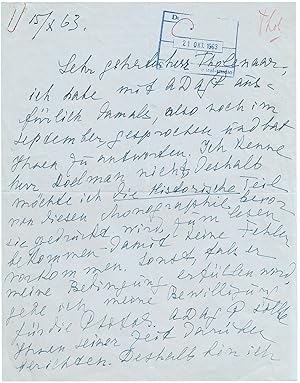 15/X 63.
21 OKT. 1963
Sehr geehrter Herr Tholenaar,
ich habe mit ADAGP aus-
fürlich damals, also noch im
September gesprochen und hat
Ihnen zu antworden. Ich kenne
Herr Rodman nicht deshalb
möchte ich die Historische Teil
von diesen Monographie bevor
sie gedruckt wird zum lesen
bekommen – damit keine Fehler
vorkommen. Sonst falls er
meine Bedingung erfühlen wird
gebe ich meine Bewilligung
für die Photos. ADAGP sollte
Ihnen seiner Zeit darüber
berichten. Deshalb bin ich